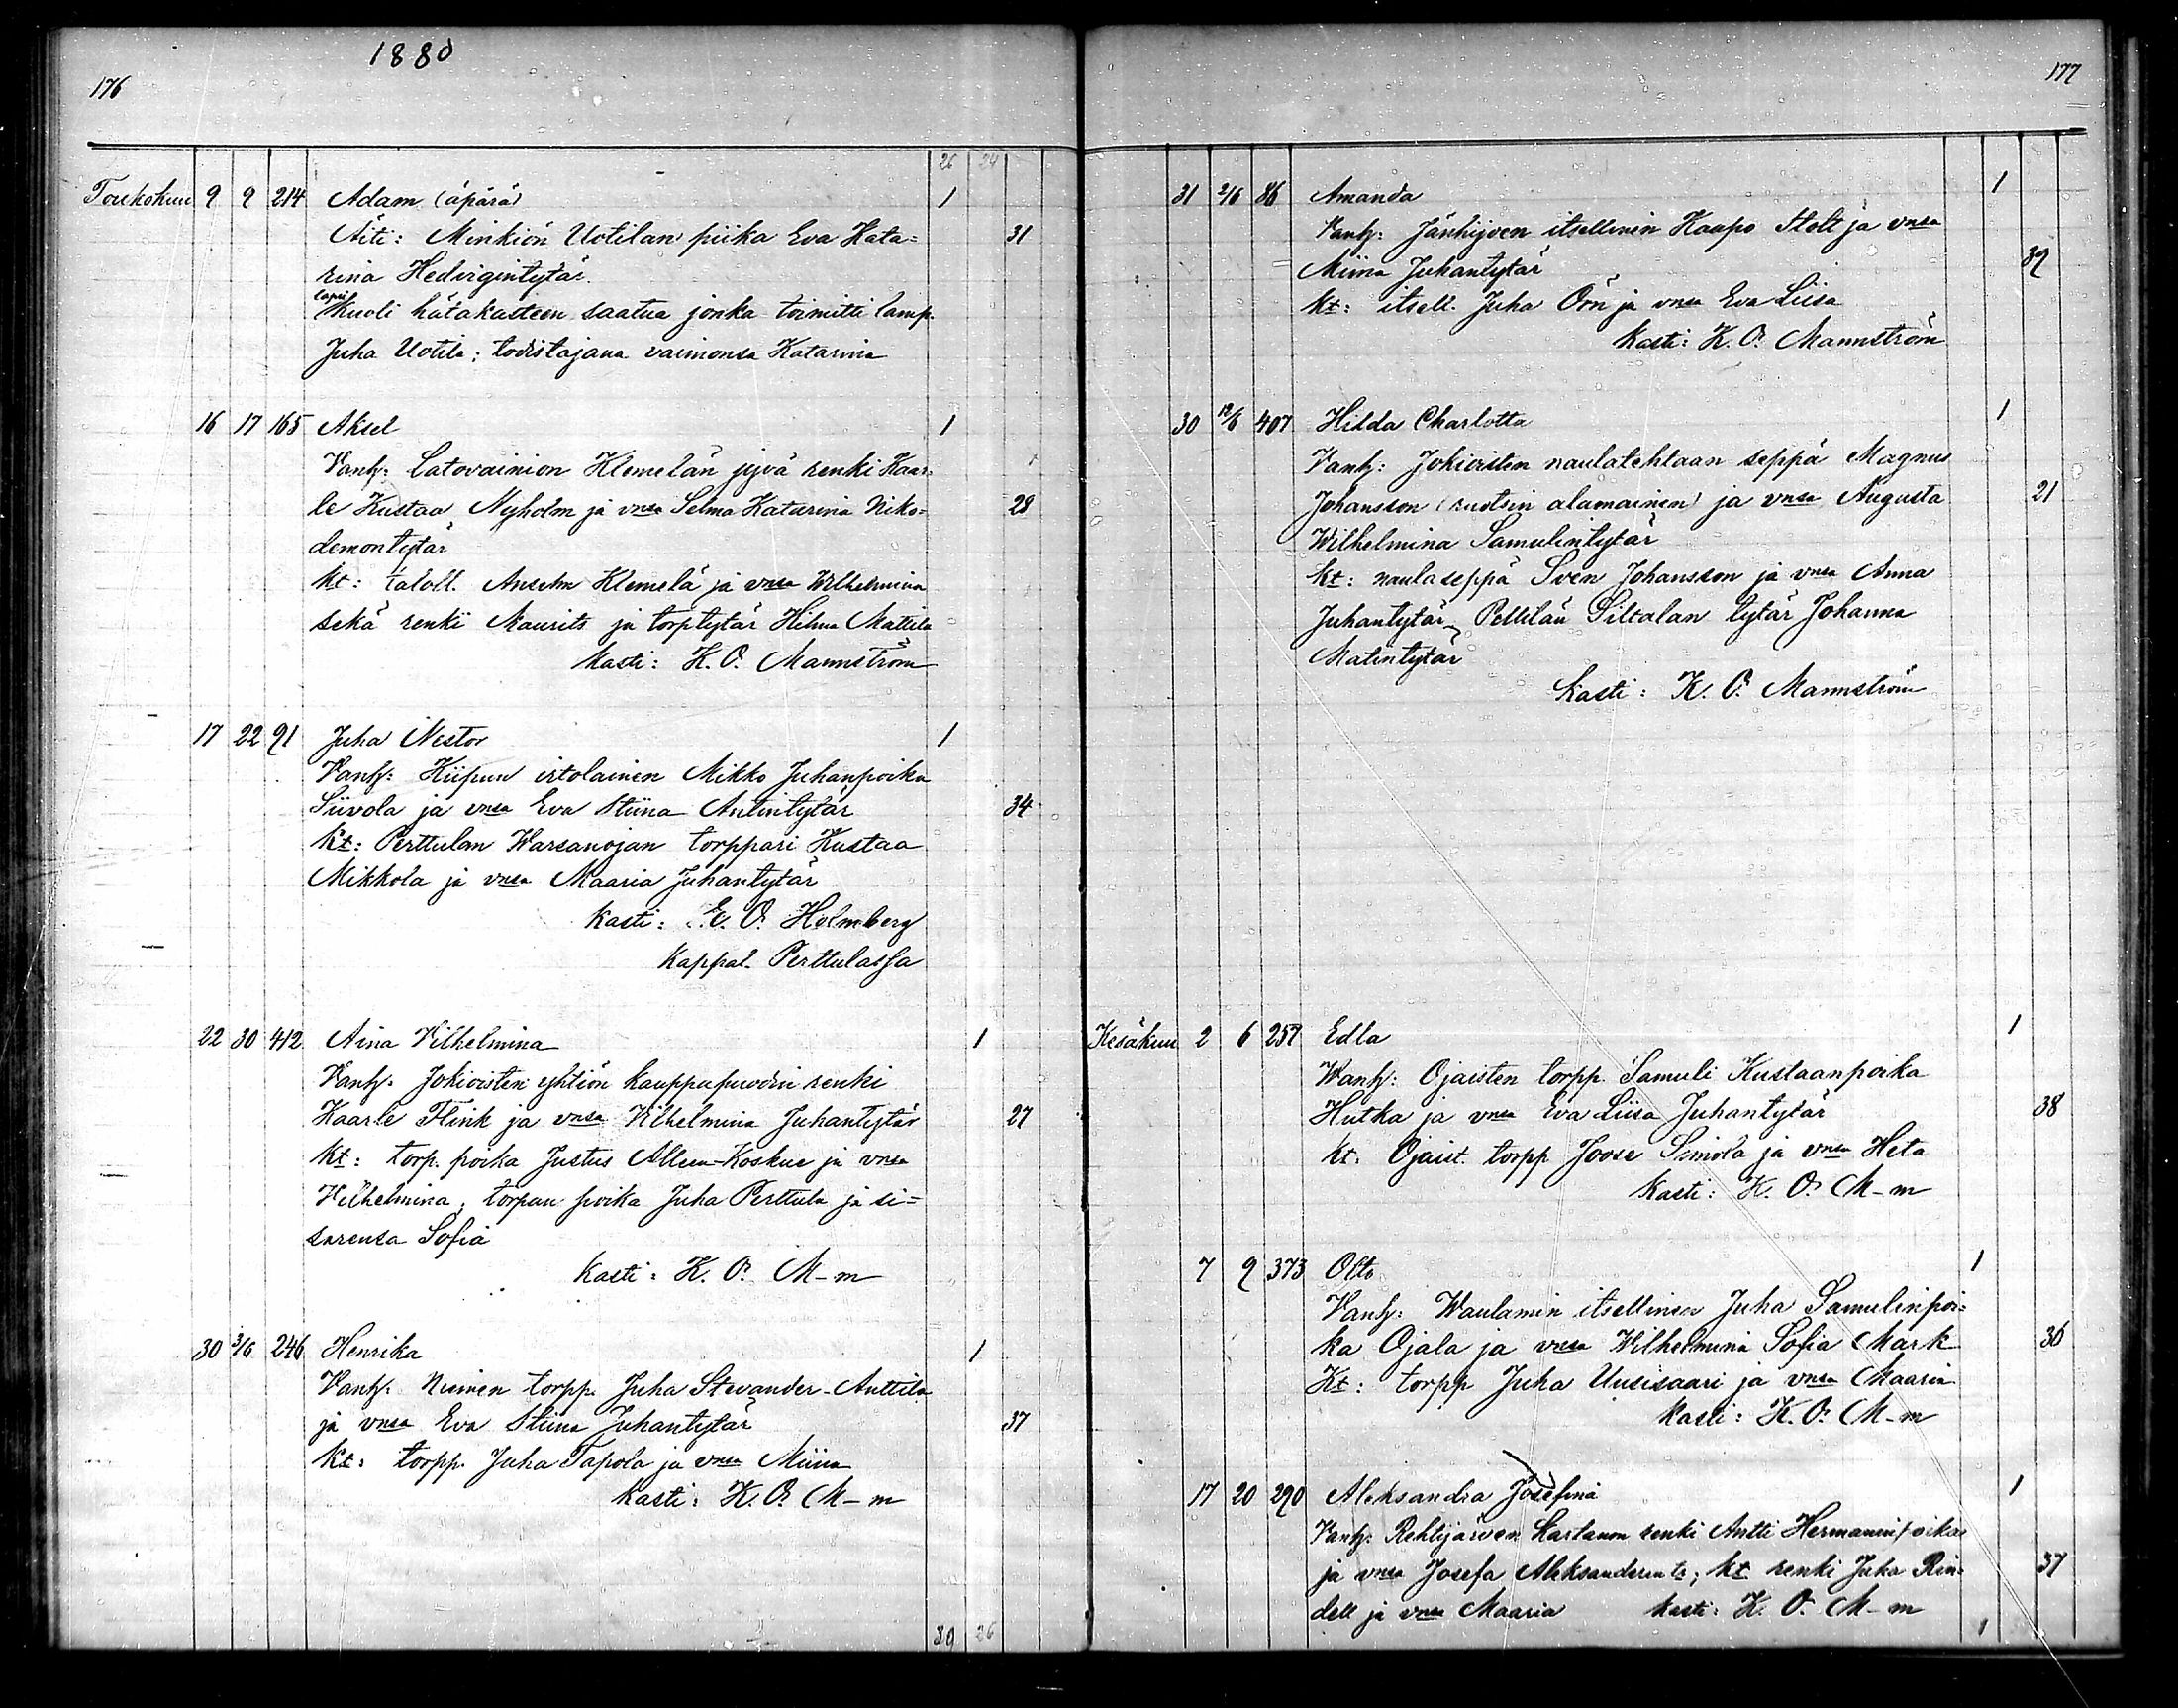 1880
176
26 24
Toukokuu 9 9 214 Adam (äpärä) 1
Äiti: Minkiön Uotilan piika Eva Kata= 31
rina Hedvigintytär.
lapsi
Kuoli hätäkasteen saatua jonka toimitti lamp.
Juha Uotila; todistajana vaimonsa Katarina
16 17 165 Aksel 1
Vanh: Latovainion Klemelän jyvä renki Kaar=
le Kustaa Nyholm ja vnsa Selma Katarina Niko= 28
demontytär
kt: taloll. Anselm Klemelä ja vnsa Wilhelmina
sekä renki Maurits ja torptytär Hilma Mattila
kasti: K. O. Mannström
17 22 91 Juha Nestor 1
Vanh: Kiipun irtolainen Mikko Juhanpoika
Siivola ja vnsa Eva Stiina Antintytär 34
kt: Perttulan Warsanojan torppari Kustaa
Mikkola ja vnsa Maaria Juhantytär
kasti: E. O. Holmberg
kappal. Perttulassa
22 30 412 Aina Vilhelmina 1
Vanh: Jokioisten yhtiön kauppapuodin renki
Kaarle Flink ja vnsa Vilhelmina Juhantytär 27
kt: torp. poika Justus Alleen-Koskue ja vnsa
Vilhelmina, torpan poika Juha Perttula ja si=
sarensa Sofia
kasti: K. O. M-m
30 3/6 246 Henrika 1
Vanh: Niemen torpp. Juha Stevander-Anttila
ja vnsa Eva Stiina Juhantytär 37
kt: torpp. Juha Tapola ja vnsa Miina
kasti: K. O. M-m
30 26
177
31 2/6 86 Amanda 1
Vanh: Jänhijoen itsellinen Kaapo Stolt ja vnsa
Miina Juhantytär 39
kt: itsell. Juha Örn ja vnsa Eva Liisa
kasti: K. O. Mannström
30 12/6 407 Hilda Charlotta 1
Vanh: Jokioisten naulatehtaan seppä Magnus
Johansson (ruotsin alamainen) ja vnsa Augusta 21
Wilhelmina Samulintytär
kt: naulaseppä Sven Johansson ja vnsa Anna
Juhantytär, Pellilän Siltalan tytär Johanna
Matintytär
kasti: K. O. Mannström
Kesäkuu 2 6 257 Edla 1
Wanh: Ojaisten torpp. Samuli Kustaanpoika
Hutka ja vnsa Eva Liisa Juhantytär 38
kt. Ojaist. torpp Joose Simola ja vnsa Heta
kasti: K. O. M-m
7 9 373 Otto 1
Vanh: Waulamin itsellinen Juha Samulinpoi=
ka Ojala ja vnsa Wilhelmina Sofia Mark 36
Kt: torpp Juha Uusisaari ja vnsa Maaria
kasti: K. O. M-m
17 20 290 Aleksandra Josefina 1
Vanh: Rehtijärven kartanon renki Antti Hermanninpoika
ja vnsa Josefa Aleksanderin tr; kt renki Juha Rin= 37
dell ja vnsa Maaria kasti: K. O. M-m
1